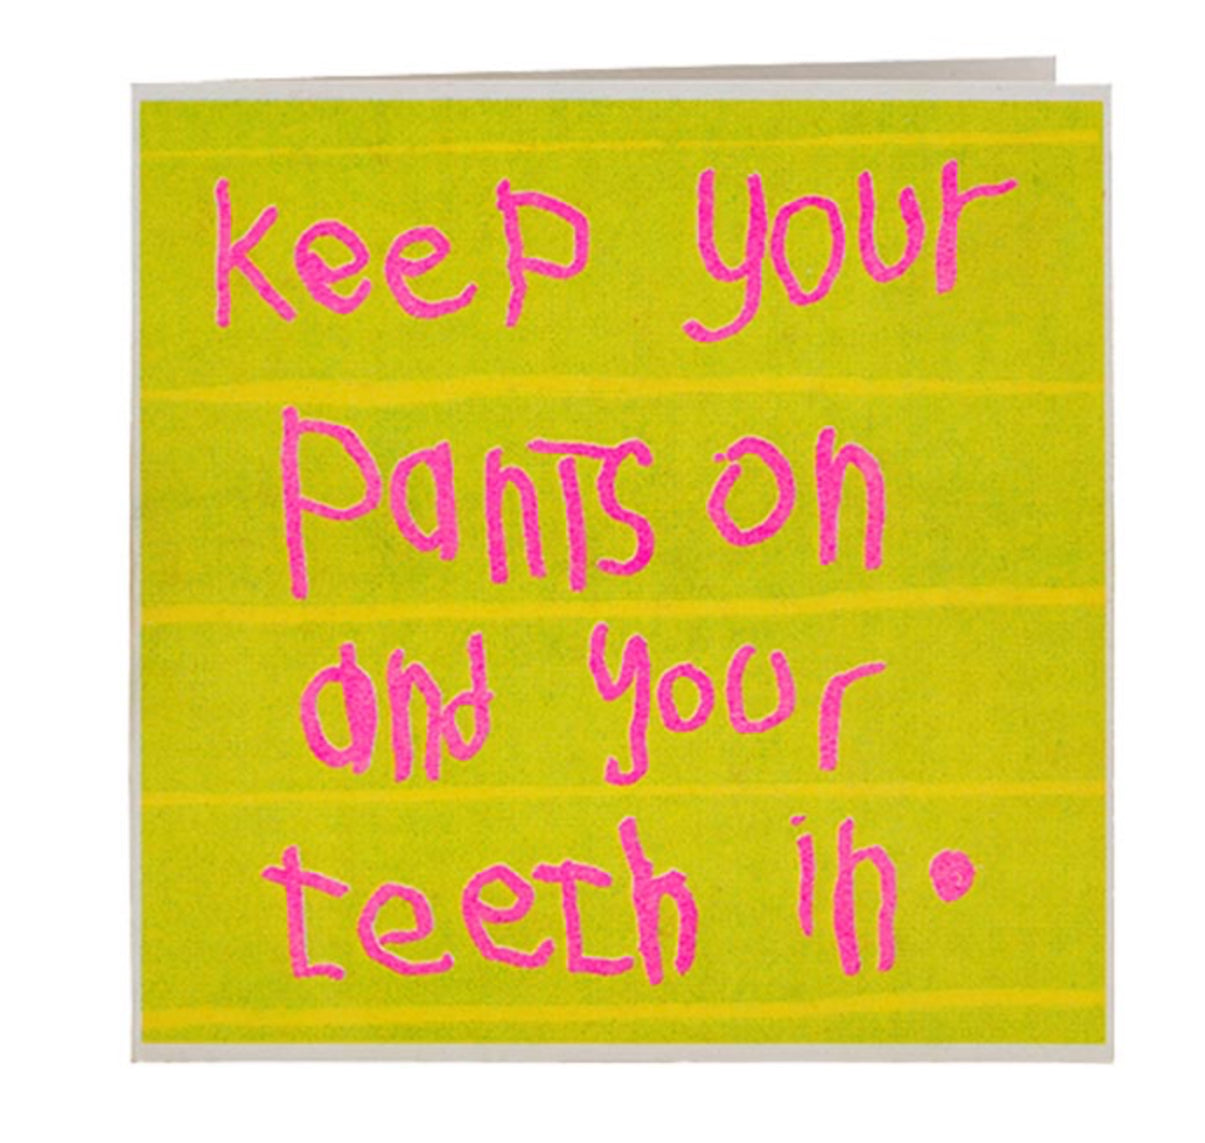 keep your
pants on
and your
teeth in.